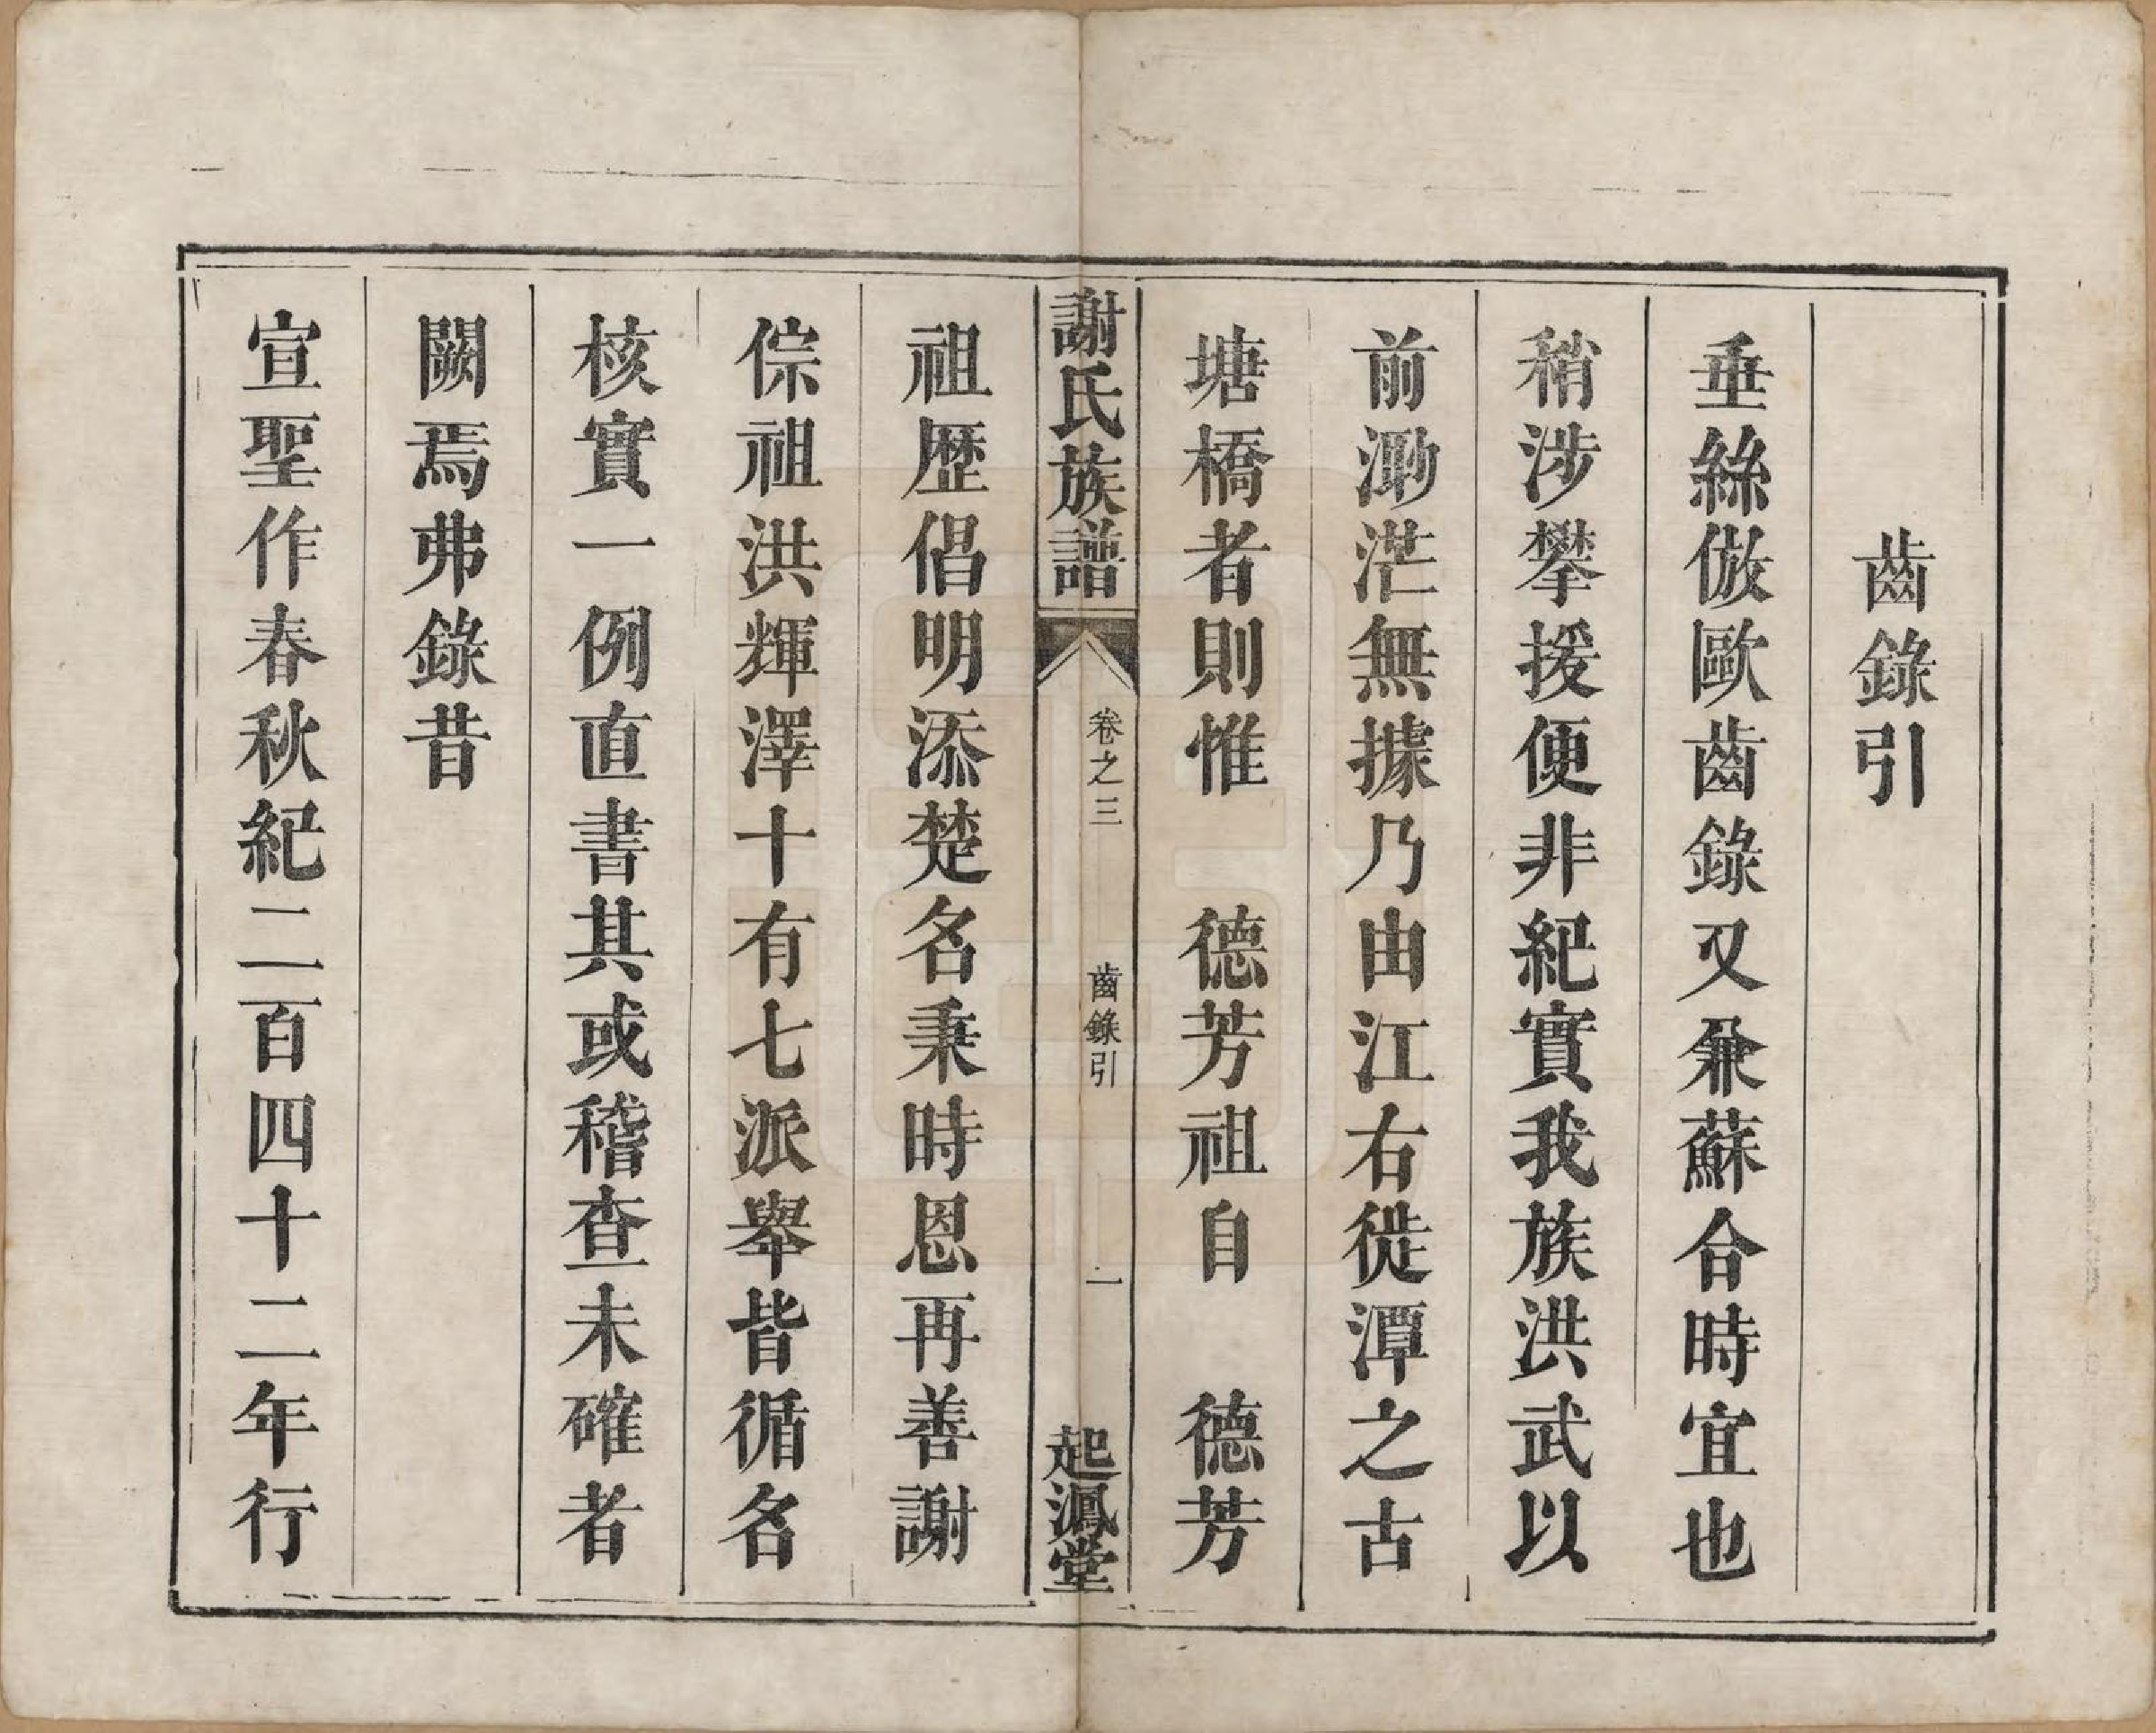 齒錄引
垂絲倣歐齒錄又兼蘇合時宜也
稍涉攀援便非紀實我族洪武以
前泐茫無據乃由江右徙潭之古
塘橋者則惟　德芳祖自　德芳
謝氏族譜　卷之三　齒錄引　一　起鳳堂
祖歷倡明添楚名秉時恩再善謝
倧祖洪輝澤十有七派舉皆循名
核實一例直書其或稽查未確者
闕焉弗錄昔
宣聖作春秋紀二百四十二年行